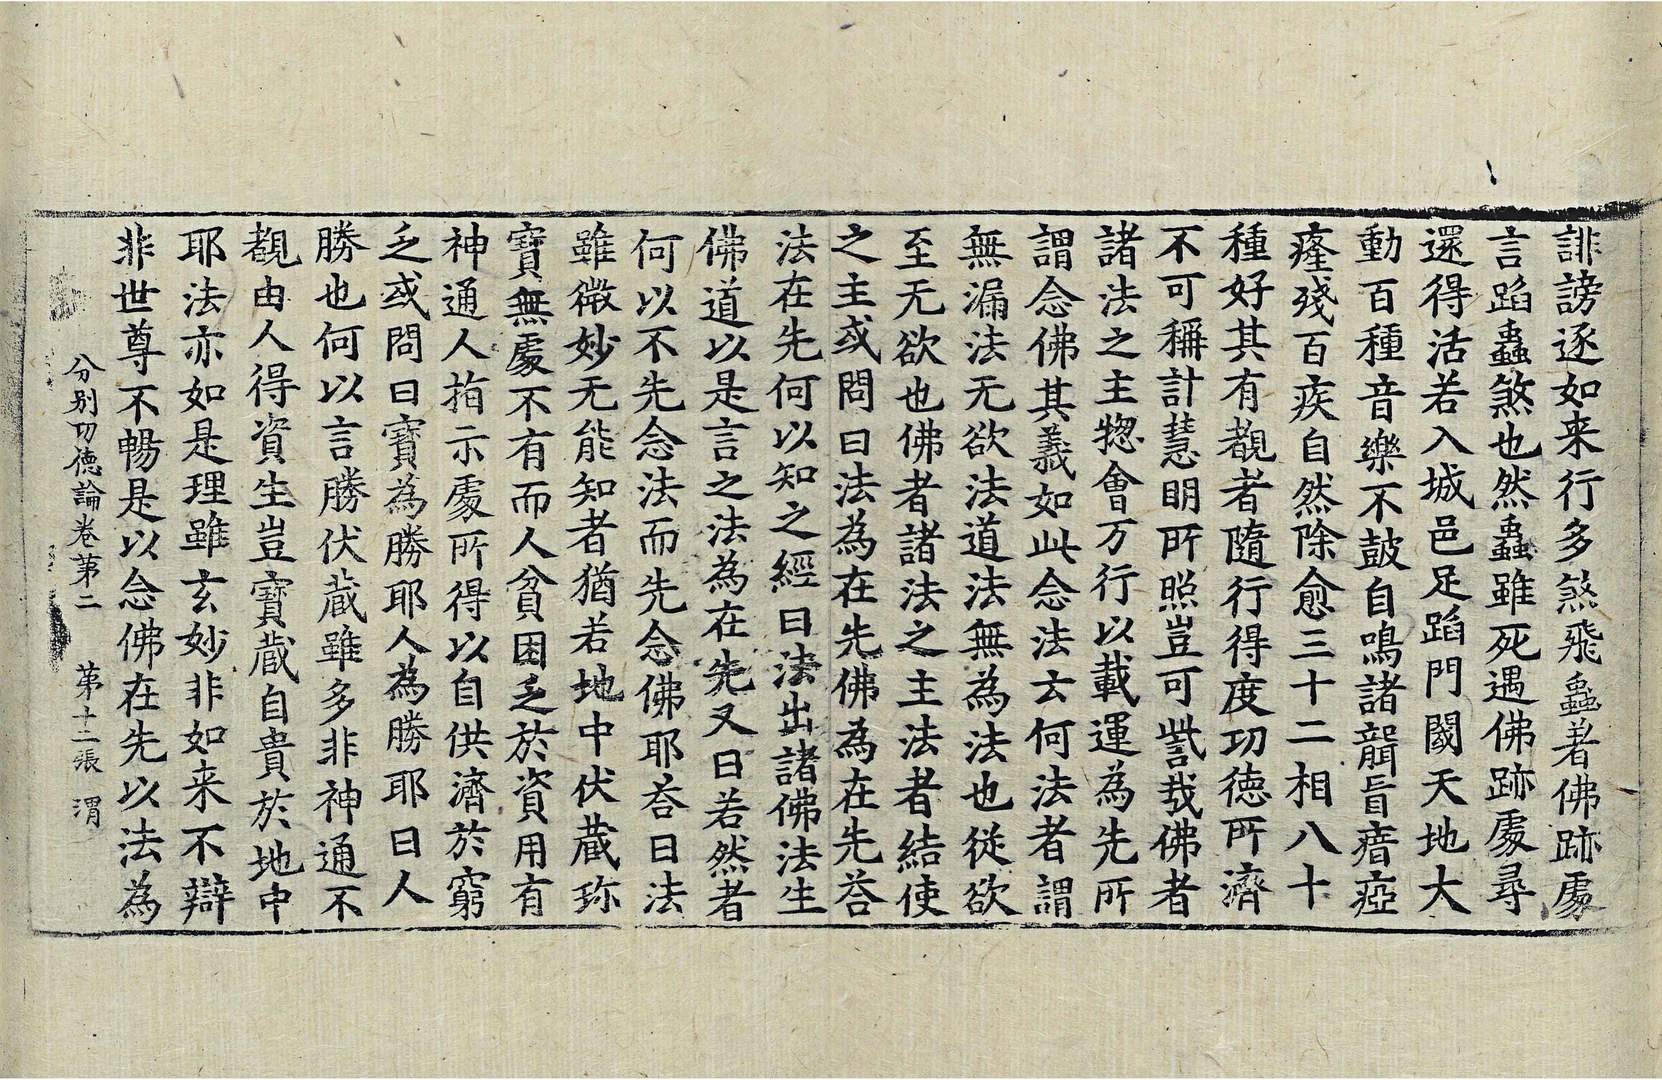 誹謗逐如来行多煞飛蟲着佛跡處
言蹈蟲煞也然蟲雖死遇佛跡處尋
還得活若入城邑足蹈門閫天地大
動百種音樂不鼓自鳴諸聾盲瘖瘂
癃殘百疾自然除愈三十二相八十
種好其有覩者隨行得度功德所濟
不可稱計慧明所照豈可訾哉佛者
諸法之主惣會万行以載運為先所
謂念佛其義如此念法云何法者謂
無漏法无欲法道法無為法也從欲
至无欲也佛者諸法之主法者結使
之主或問曰法為在先佛為在先荅
法在先何以知之經曰法出諸佛法生
佛道以是言之法為在先又曰若然者
何以不先念法而先念佛耶荅曰法
雖微妙无能知者猶若地中伏蔵珎
寶無處不有而人貧困乏於資用有
神通人指示處所得以自供濟於窮
乏或問曰寶為勝耶人為勝耶曰人
勝也何以言勝伏蔵雖多非神通不
覩由人得資生豈寶蔵自貴於地中
耶法亦如是理雖玄妙非如来不辯
非世尊不暢是以念佛在先以法為
分别功德論卷第二　第十二張　渭